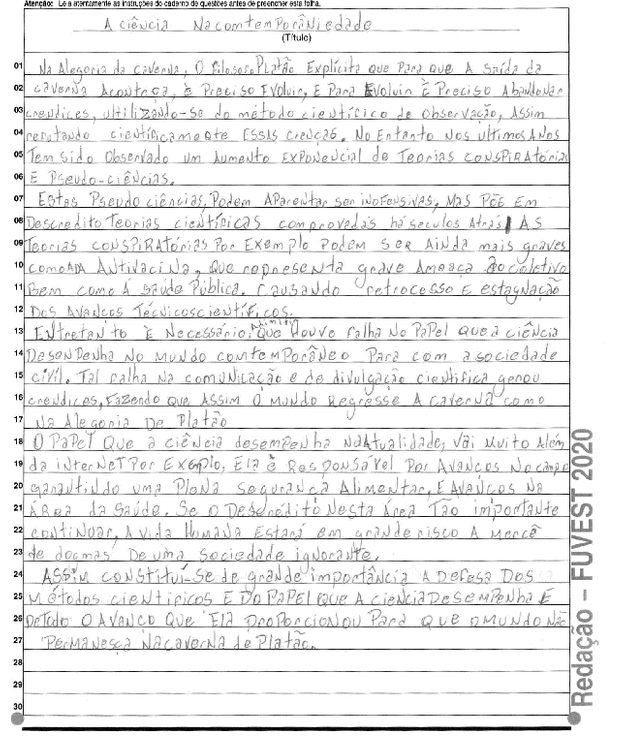 Atenção: Leia atentamente as instruções do caderno de questões antes de preencher esta folha.
A ciência Nacomtemporâniedade
(Título)
01 Na Alegoria da caverna, O filosofo Platão Explícita que Para que A Saída da
02 caverna Aconteça, é Preciso Evoluir, E Para Evoluir É Preciso Abandonar
03 crendices, ultilizando-se do método científico de observação, Assim
04 refutando científicamente Essas crenças. No Entanto Nos ultimos Anos
05 Tem sido Observado um Aumento Exponencial de Teorias conspiratórias
06 E Pseudo-ciências.
07 Estas Pseudo ciências, Podem Aparentar ser inofensivas, Mas PÕE Em
08 Descredito Teorias científicas comprovadas há seculos Atrás, As
09 Teorias conspiratórias Por Exemplo Podem ser Ainda mais graves
10 como Antivacina, que representa grave Ameaça Ao coletivo
11 Bem como Á saúde Pública. causando retrocesso E estagnação
12 Dos Avancos Técnicoscientíficos.
13 Entretanto É Necessário, Admitir Que Houve falha No Papel que a ciência
14 Desenpenha No Mundo comtemporâneo Para com a sociedade
15 civíl. Tal falha Na comunicação e de divulgação cientifica gerou
16 crendices, Fazendo que Assim O Mundo Regresse A caverna como
17 Na Alegoria De Platão
18 O Papel Que a ciência desempenha Na Atualidade, Vai Muito Além
19 da internet Por Exemplo, Ela é Responsavel Por Avancos No campo
20 garantindo uma Plena Segurança Alimentar, E Avanços Na
21 ÁRea da Saúde. Se o Descredito Nesta Área Tão importante
22 continuar, A vida Humana Estará em grande risco A Mercê
23 de dogmas De uma Sociedade ignorante.
24 Assim constituí-se de grande importância A Defesa Dos
25 Métodos cientificos E Do Papel que A ciencia Desempenha E
26 De Todo O Avanco Que Ela Proporcionou Para que o mundo Não
27 Permanesça Na caverna de Platão.
28
29
30
Redação – FUVEST 2020